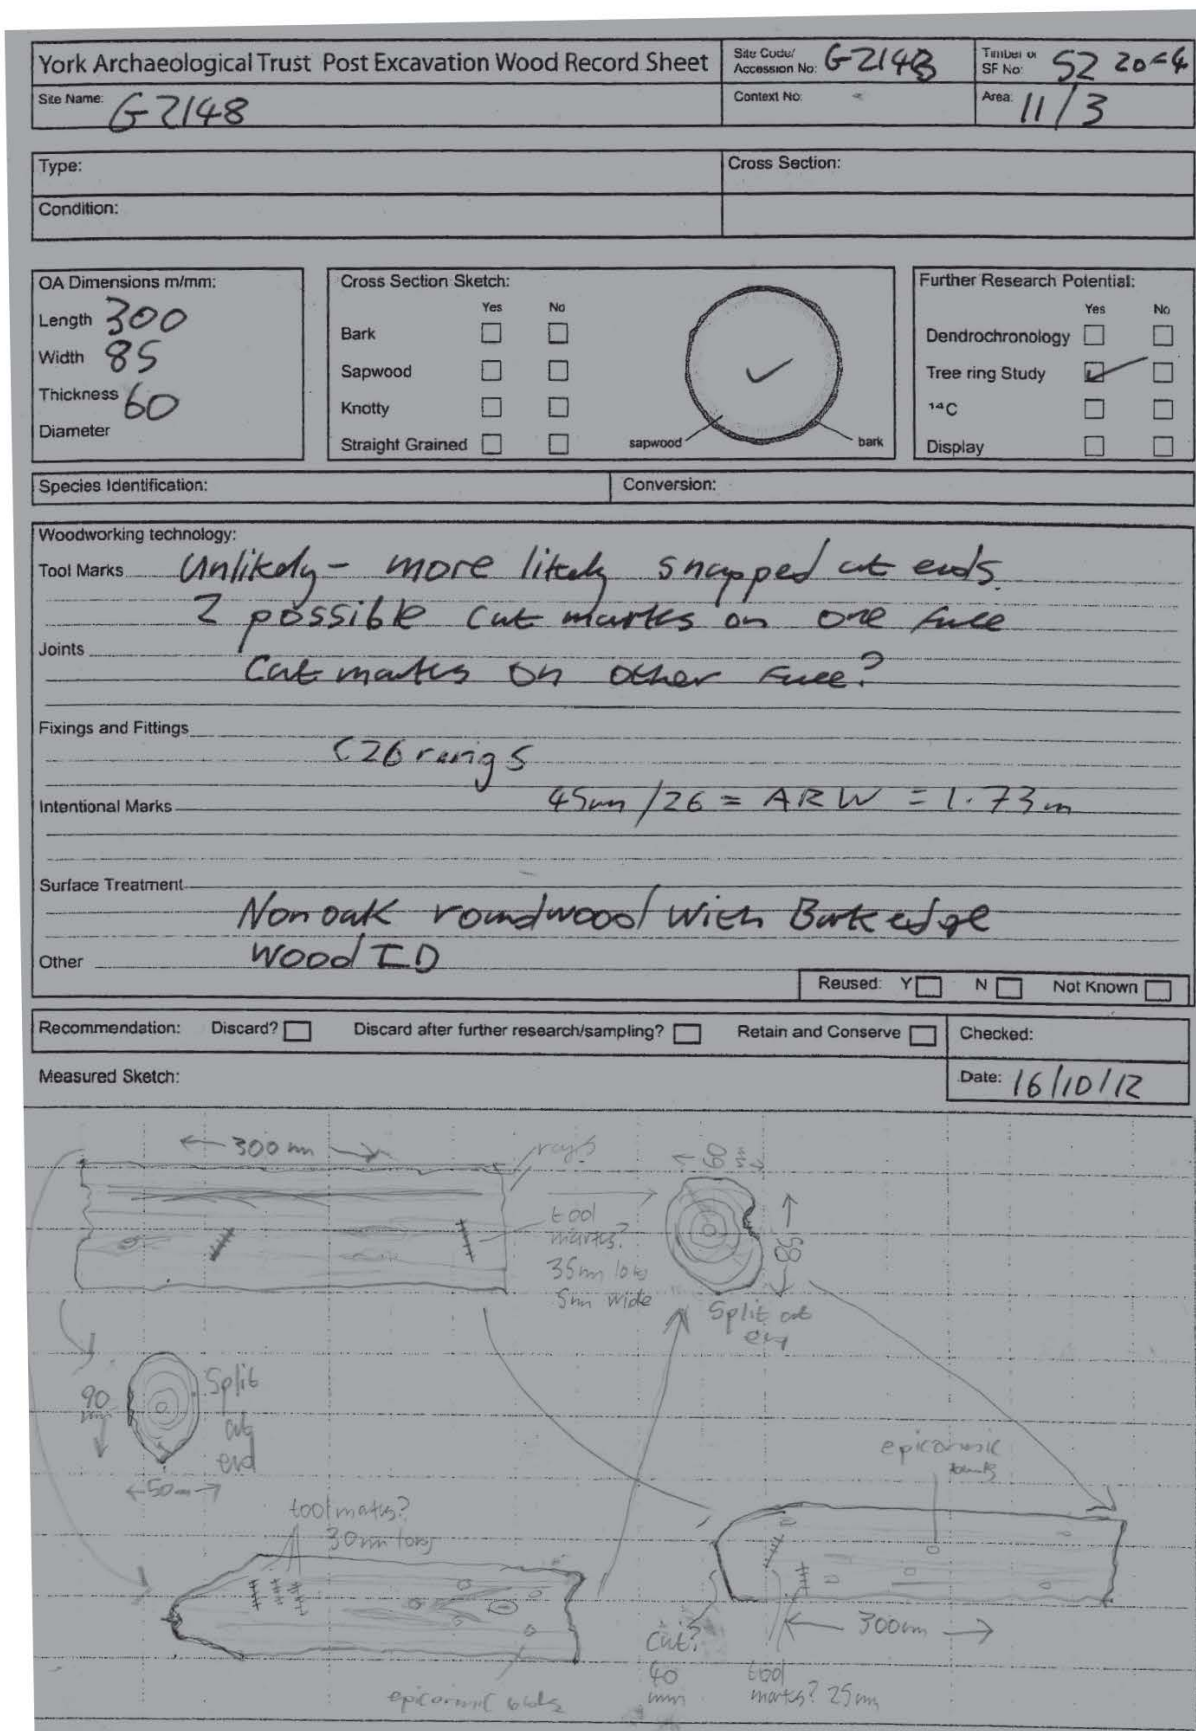 York Archaeological Trust Post Excavation Wood Record Sheet
Site Code/ Accession No: G2148
Timber or SF No: SZ
Site Name: G2148
Context No:
Area: 11/3
Type:
Cross Section:
Condition:
OA Dimensions m/mm:
Length 300
Width 85
Thickness 60
Diameter
Cross Section Sketch:
Yes No
Bark
Sapwood
Knotty
Straight Grained
sapwood
bark
Further Research Potential:
Yes No
Dendrochronology
Tree ring Study
14C
Display
Species Identification:
Conversion:
Woodworking technology:
Tool Marks Unlikely - more likely snapped at ends.
2 possible cut marks on one face
Joints
Cut marks on other face?
Fixings and Fittings
C26 rings
Intentional Marks 45mm/26 = ARW = 1.73m
Surface Treatment
Non oak roundwood with Bark edge
Other Wood ID
Reused: Y N Not Known
Recommendation: Discard? Discard after further research/sampling? Retain and Conserve
Checked:
Measured Sketch:
Date: 16/10/12
300mm
rays
60
tool
marks?
35mm long
5mm wide
Split at
end
90
mm
Split
at
end
50m
toolmarks?
30mm long
epicormic buds
epicormic
Cut?
40
mm
300mm
tool
marks? 25mm